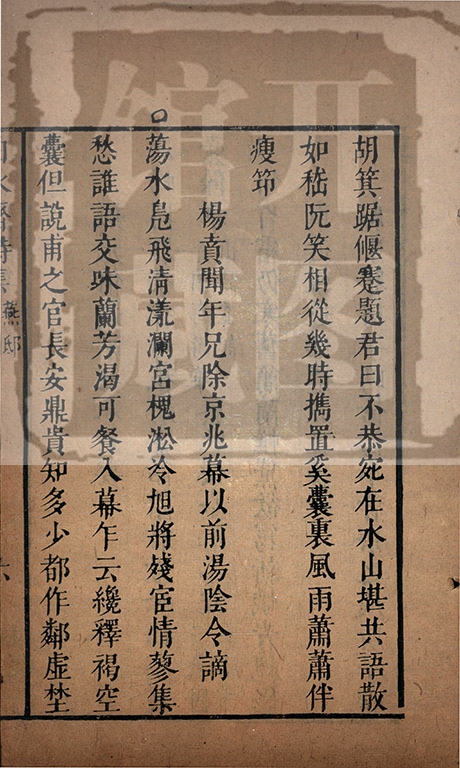 胡箕踞偃蹇題君曰不恭宛在水山堪共語散
如嵇阮笑相從幾時攜置奚囊裏風雨蕭蕭伴
瘦筇
楊賁聞年兄除京兆幕以前湯陰令謫
蕩水鳧飛清漾瀾宮槐淞冷旭將殘宦情蓼集
愁誰語交味蘭芳渴可餐入幕乍云纔釋褐空
囊但說甫之官長安鼎貴知多少都作鄰虛埜
燕邸
六